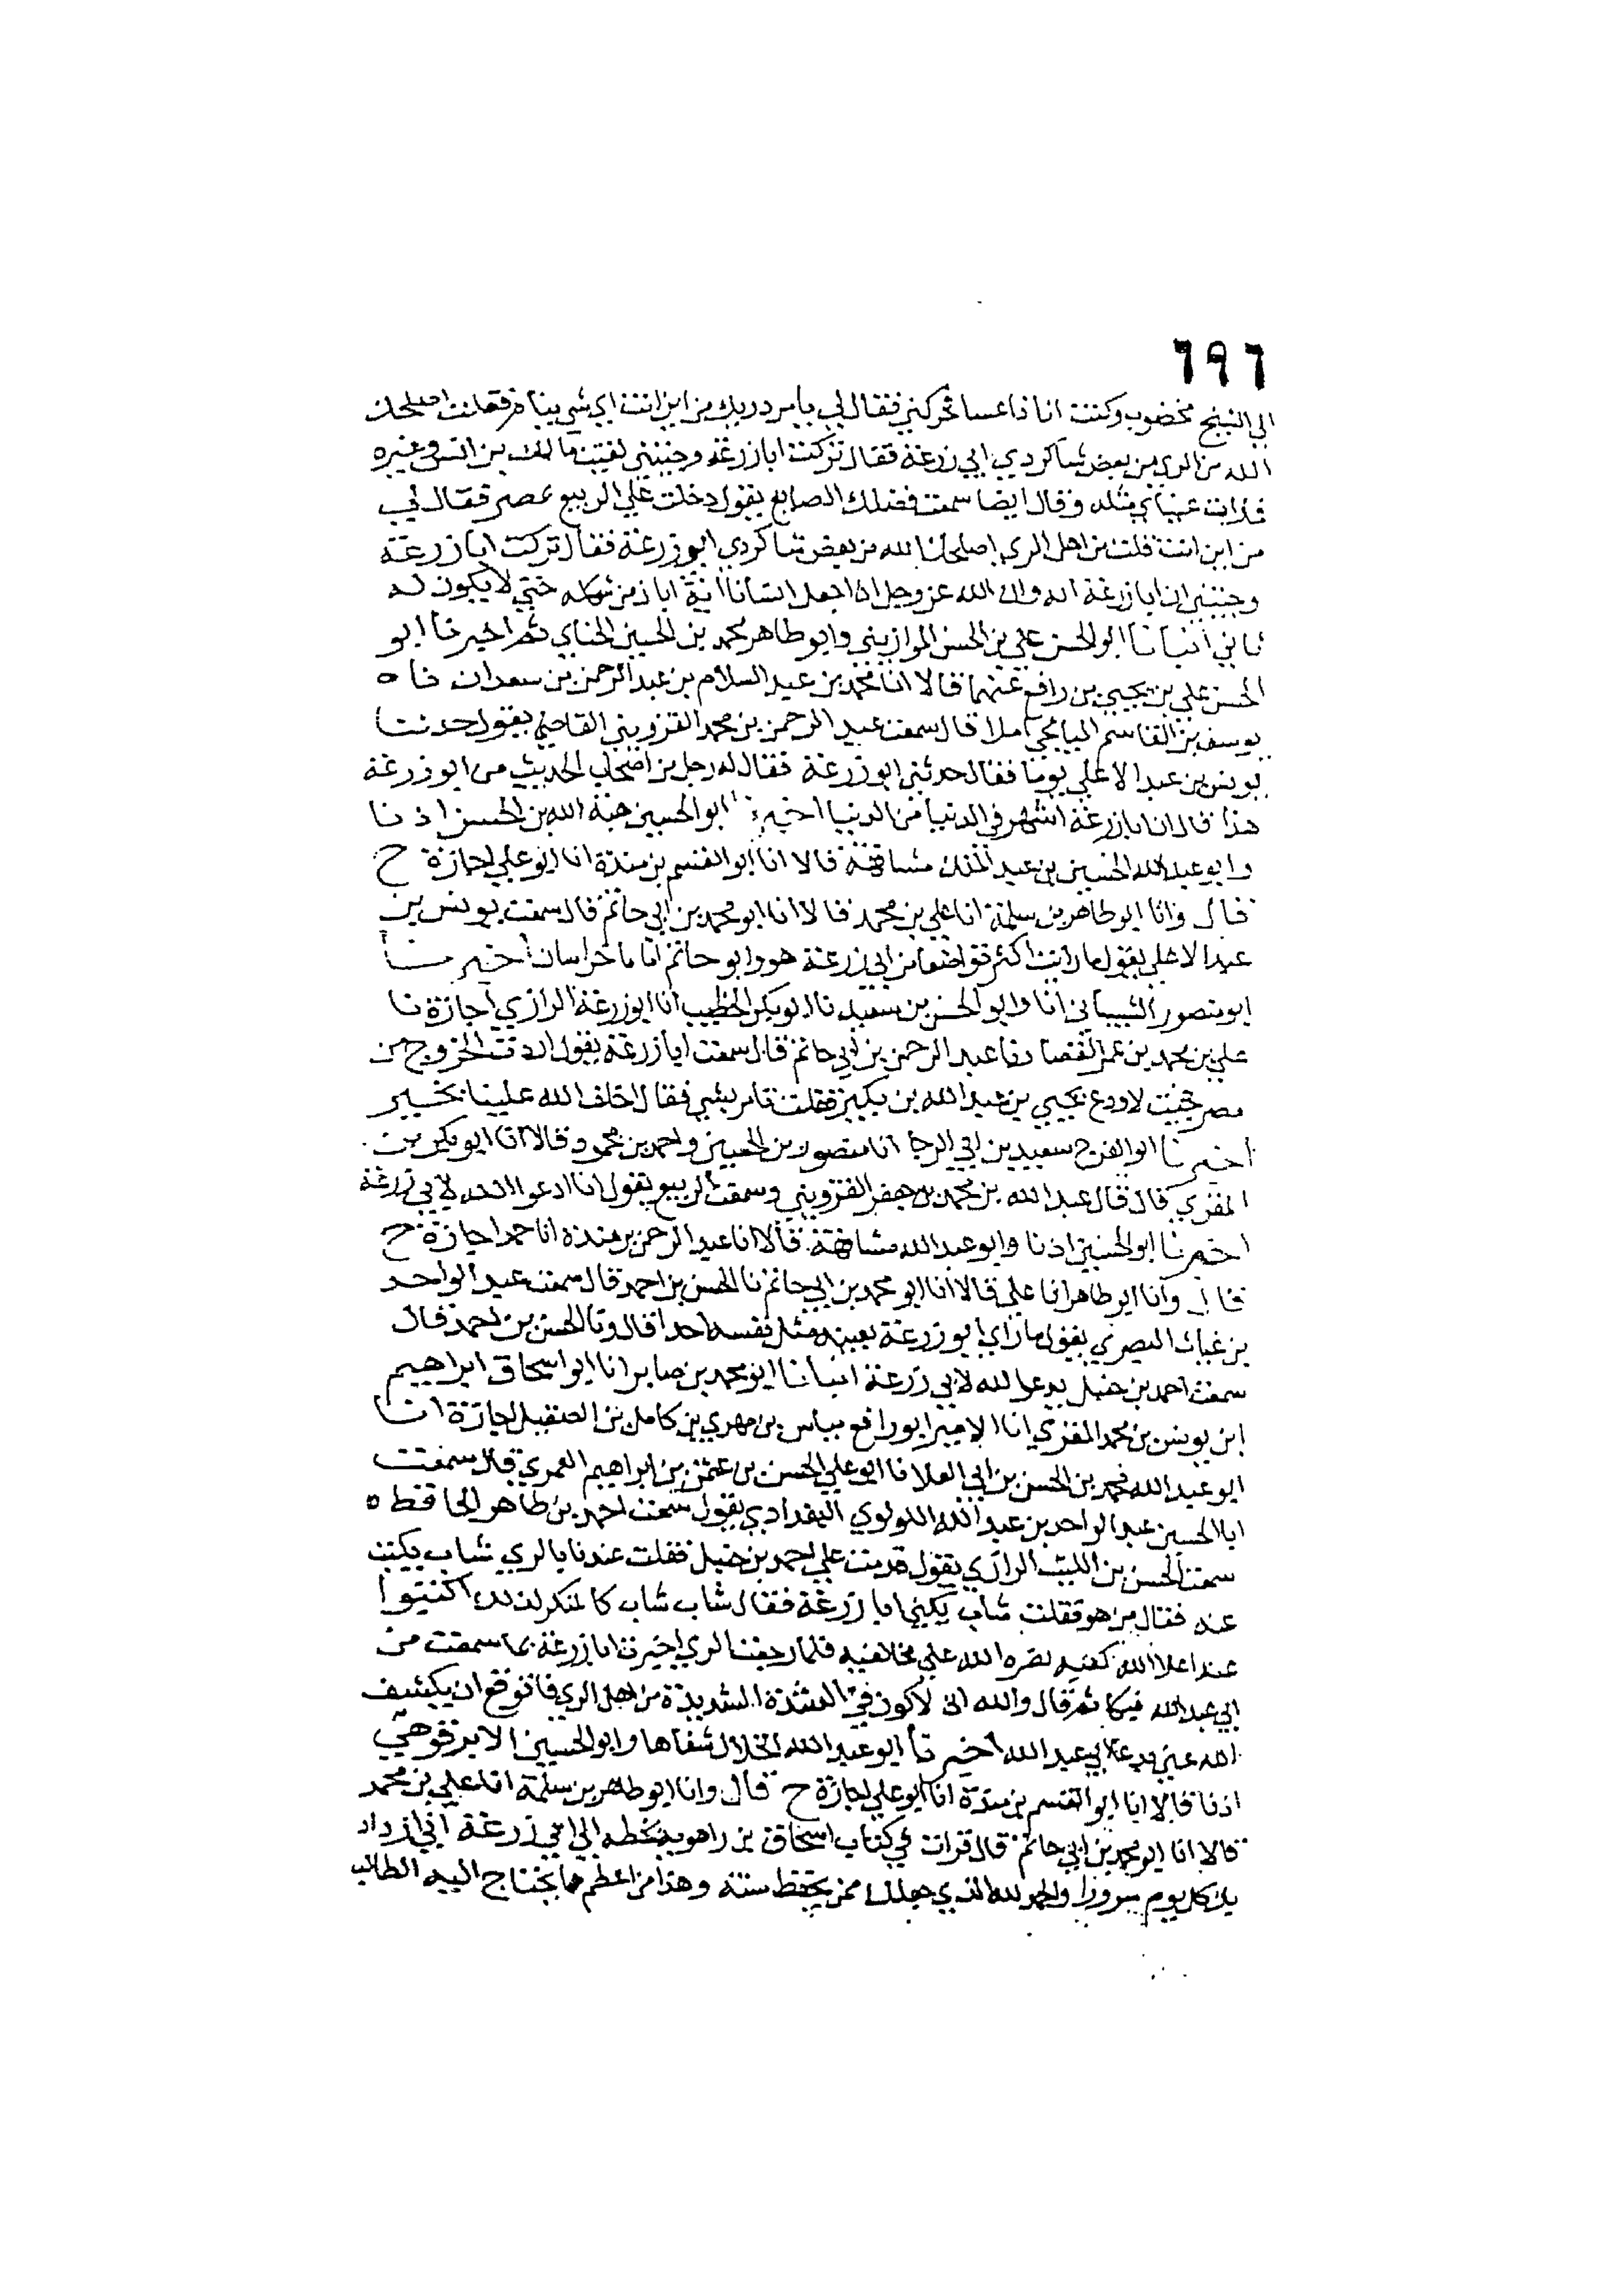 ٦٩٦
الى الشيخ مخضوب وكنت انا ناعسا فحركني فقال لي يا مردريك من اين انت اي شي تنام فقلت اصلحك
الله من الري من بعض شاكردي ابي زرعة فقال تركت ابا زرعة وجئتني لقيت مالك بن انس وغيره
فما رات عيناي مثله وقال ايضا سمعت فضلك الصايع يقول دخلت علي الربيع بمصر فقال لي
من اين انت قلت من اهل الري اصلحك الله من بعض شاكردي ابو زرعة فقال تركت ابا زرعة
وجئتني ان ابا زرعة اية وان الله عز وجل اذا جعل انسانا اية ابان من شكله حتي لا يكون له
ثاني انبانا ابو الحسن علي بن الحسن الموازيني وابو طاهر محمد بن الحسين الحناي ثم اخبرنا ابو
الحسن علي بن يحيي بن رافع عنهما قالا انا محمد بن عبد السلام بن عبد الرحمن بن سعدان نا ه
يوسف بن القاسم الميانجي املا قال سمعت عبد الرحمن بن محمد القزويني القاضي يقول حدثنا
يونس بن عبد الاعلي يوما فقال حدثني ابو زرعة فقال له رجل من اصحاب الحديث من ابو زرعة
هذا قال ان ابا زرعة اشهر في الدنيا من الدنيا اخبرنا ابو الحسين هبة الله بن الحسن اذنا
وابو عبد الله الحسين بن عبد الملك مشافهة قالا انا ابو القسم بن مندة انا ابو علي اجازة ح
قال وانا ابو طاهر بن سلمة انا علي بن محمد قالا انا ابو محمد بن ابي حاتم قال سمعت يونس بن
عبد الاعلي يقول ما رايت اكثر تواضعا من ابي زرعة هو وابو حاتم اماما خراسان اخبرنا
ابو منصور الشيباني انا وابو الحسن بن سعيد نا ابو بكر الخطيب انا ابو زرعة الرازي اجازة نا
علي بن محمد بن عمر القصار نا عبد الرحمن بن ابي حاتم قال سمعت ابا زرعة يقول اردت الخروج من
مصر فجيت لاودع يحيي بن عبد الله بن بكير فقلت تامر بشي فقال اخلف الله علينا بخير
اخبرنا ابو الفرج سعيد بن ابي الرجا انا منصور بن الحسين واحمد بن محمود قالا انا ابو بكر بن
المقري قال قال عبد الله بن محمد بن جعفر القزويني وسمعت الربيع يقول انا ادعوا الله لابي زرعة
اخبرنا ابو الحسين اذنا وابو عبد الله مشافهة قالا انا عبد الرحمن بن مندة انا حمد اجازة ح
قال وانا ابو طاهر انا علي قالا انا ابو محمد بن ابي حاتم نا الحسن بن احمد قال سمعت عبد الواحد
بن غياث البصري يقول ما راي ابو زرعة بعينه مثل نفسه احدا قال ونا الحسن بن احمد قال
سمعت احمد بن حنبل يدعوا الله لابي زرعة انبانا ابو محمد بن صابر انا ابو اسحاق ابراهيم
ابن يونس بن محمد المقري انا الامير ابو رافع مياس بن مهري بن كامل بن الصقيل اجازة انا
ابو عبد الله محمد بن الحسن بن ابي العلا نا ابو علي الحسن بن عثمن بن ابراهيم العمري قال سمعت
ابا الحسين عبد الواحد بن عبد الله اللولوي البغدادي يقول سمعت احمد بن طاهر الحافظ ه
سمعت الحسن بن الليث الرازي يقول قدمت علي احمد بن حنبل فقلت عندنا بالري شاب يكتب
عنه فقال من هو فقلت شاب يكني ابا زرعة فقال شاب شاب كالمنكر لذلك اكتبوا
عنه اعلا الله كعبه نصره الله علي مخالفيه فلما رجعنا الري اخبرت ابا زرعة بما سمعت من
ابي عبد الله فبكا ثم قال والله اني لاكون في الشدة الشديدة من اهل الري فاتوقع ان يكشف
الله عني بدعا ابي عبد الله اخبرنا ابو عبد الله الخلال شفاها وابو الحسين الابرقوهي
اذنا قالا انا ابو القسم بن مندة انا ابو علي اجازة ح قال وانا ابو طاهر بن سلمة انا علي بن محمد
قالا انا ابو محمد بن ابي حاتم قال قرات في كتاب اسحاق بن راهويه بخطه الي ابي زرعة اني ازداد
بك كل يوم سرورا والحمد لله الذي جعلك ممن يحفظ سنته وهذا من اعظم ما يحتاج اليه الطالب